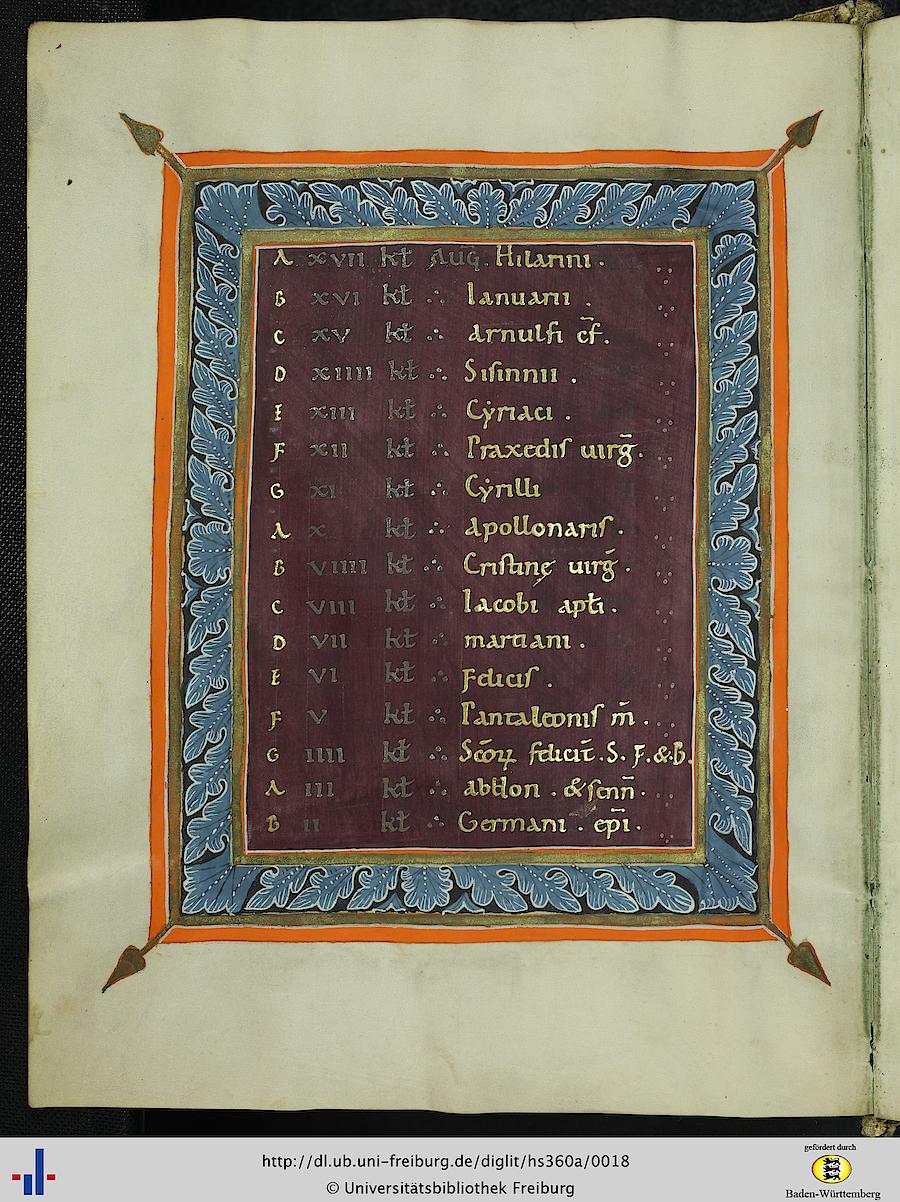 A xvii kł Aug̅. Hilarini .
B xvi kł ∴ Ianuarii .
C xv kł ∴ arnulfi c̅f.
D xiiii kł ∴ Sisinnii .
E xiii kł ∴ Cẏriaci .
F xii kł ∴ Praxedis uirg̅.
G xi kł ∴ Cẏrilli
A x kł ∴ apollonaris .
B viiii kł ∴ Cristinę uirg̅ .
C viii kł ∴ Iacobi apłi .
D vii kł ∴ martiani .
E vi kł ∴ Felicis .
F v kł ∴ Pantaleonis m̅ .
G iiii kł ∴ Sc̅oꝝ felicit̅ . S . F . & B .
A iii kł ∴ abdon . & senn̅ .
B ii kł ∴ Germani . ep̅i .
http://dl.ub.uni-freiburg.de/diglit/hs360a/0018
© Universitätsbibliothek Freiburg
gefördert durch
Baden-Württemberg